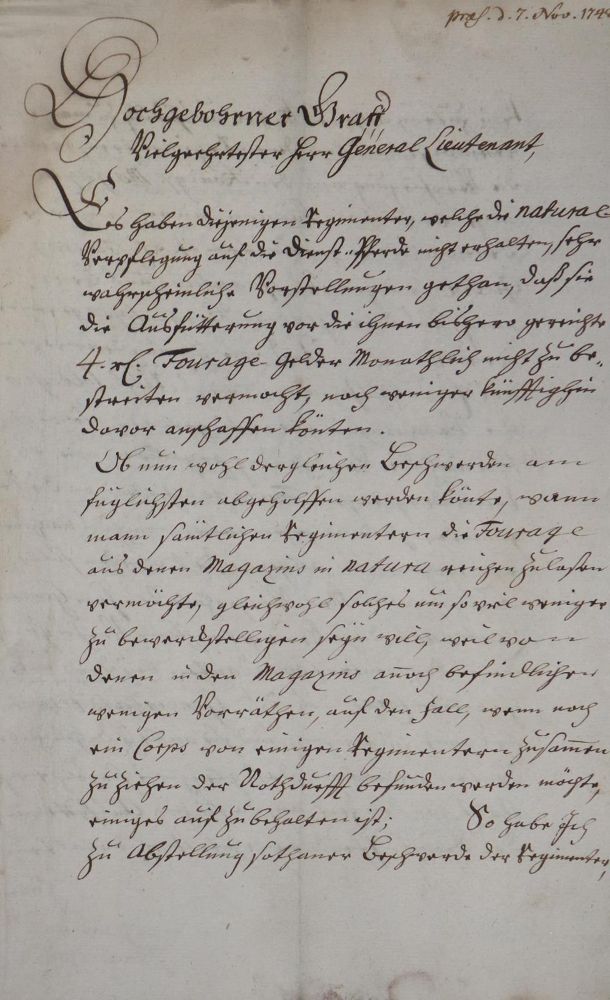 præs. d. 7. Nov. 174
Hochgebohrner Graff
Vielgeehrtester Herr General Lieutenant,
Es haben diejenigen Regimenter, welche die natural
Verpflegung auf die Dienst-Pferde nicht erhalten, sehr
wahrscheinliche Vorstellungen gethan, daß sie
die Ausfütterung vor die ihnen bishero gereichte
4. rl. Fourage-Gelder Monathlich nicht zu be-
streiten vermocht, noch weniger künfftighin
davor anschaffen könten.
Ob nun wohl dergleichen Beschwerden am
füglichsten abgeholffen werden könte, wann
mann sämtlichen Regimentern die Fourage
aus denen Magazins in natura reichen zulaßen
vermöchte, gleichwohl solches um so viel weniger
zu bewerckstelligen seyn will, weil von
denen in den Magazins annoch befindlichen
wenigen Vorräthen, auf den Fall, wenn noch
ein Corps von einigen Regimentern zusammen
zu ziehen der Nothdurfft befunden werden möchte,
einiges aufzubehalten ist; So habe Ich
zu Abstellung sothaner Beschwerde der Regimenter,